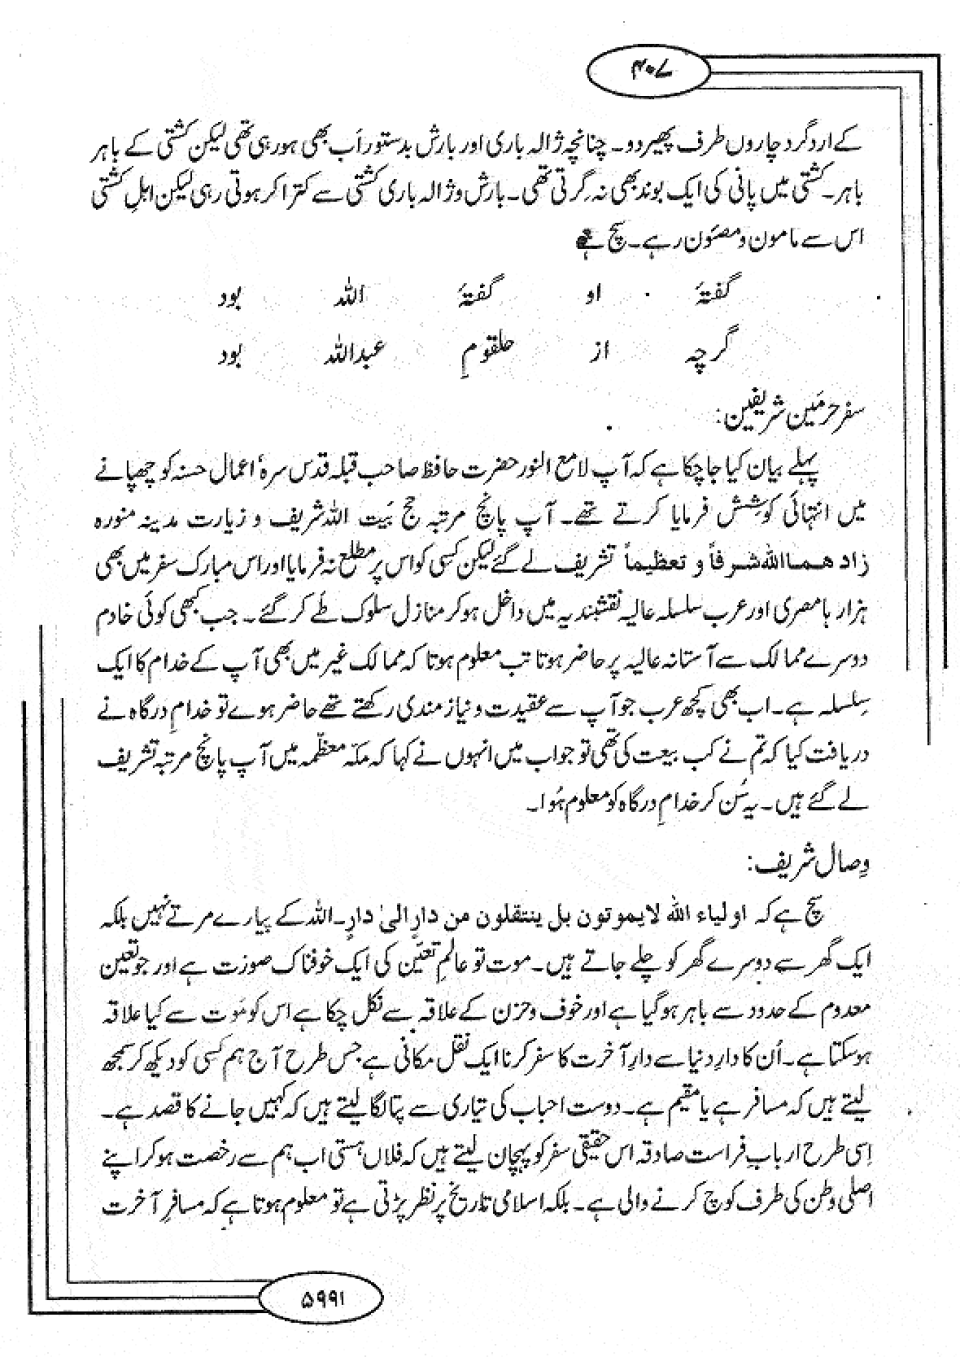 ۴۰۷
کے اردگرد چاروں طرف پھیر دو۔ چنانچہ ژالہ باری اور بارش بدستور اَب بھی ہورہی تھی لیکن کشتی کے باہر
باہر۔ کشتی میں پانی کی ایک بوند بھی نہ گرتی تھی۔ بارش و ژالہ باری کشتی سے کترا کر ہوتی رہی لیکن اہلِ کشتی
اس سے مامون و مصئون رہے۔ سچ ہے
گفتۂ او گفتۂ اللہ بود
گرچہ از حلقومِ عبداللہ بود
سفر حرمَین شریفین:
پہلے بیان کیا جاچکا ہے کہ آپ لامع النور حضرت حافظ صاحب قبلہ قدس سرہٗ اعمال حسنہ کو چھپانے
میں انتہائی کوشِش فرمایا کرتے تھے۔ آپ پانچ مرتبہ حج بَیت اللہ شریف و زیارت مدینہ منورہ
زاد هما الله شرفاً و تعظیماً تشریف لے گئے لیکن کسی کو اس پر مطلع نہ فرمایا اور اس مبارک سفر میں بھی
ہزارہا مصری اور عرب سلسلہ عالیہ نقشبندیہ میں داخل ہو کر منازل سلوک طے کر گئے۔ جب کبھی کوئی خادم
دوسرے ممالک سے آستانہ عالیہ پر حاضر ہوتا تب معلوم ہوتا کہ ممالک غیر میں بھی آپ کے خدام کا ایک
سِلسلہ ہے۔ اب بھی کچھ عرب جو آپ سے عقیدت و نیاز مندی رکھتے تھے حاضر ہوے تو خدامِ درگاہ نے
دریافت کیا کہ تم نے کب بیعت کی تھی تو جواب میں انہوں نے کہا کہ مکّہ معظّمہ میں آپ پانچ مرتبہ تشریف
لے گئے ہیں۔ یہ سُن کر خدامِ درگاہ کو معلوم ہُوا۔
وِصال شریف:
سچ ہے کہ اولیاء الله لایموتون بل ینتقلون من دارٍ الیٰ دارٍ۔ اللہ کے پیارے مرتے نہیں بلکہ
ایک گھر سے دوسرے گھر کو چلے جاتے ہیں۔ موت تو عالمِ تعیّن کی ایک خوفناک صورَت ہے اور جو تعین
معدوم کے حدود سے باہر ہوگیا ہے اور خوف و حزن کے علاقہ سے نکل چکا ہے اس کو مَوت سے کیا علاقہ
ہوسکتا ہے۔ اُن کا دارِ دنیا سے دارِ آخرت کا سفر کرنا ایک نقل مکانی ہے جس طرح آج ہم کسی کو دیکھ کر سمجھ
لیتے ہیں کہ مسافر ہے یا مقیم ہے۔ دوست احباب کی تیاری سے پتا لگا لیتے ہیں کہ کہیں جانے کا قصد ہے۔
اِسی طرح اربابِ فراست صادقہ اس حقیقی سفر کو پہچان لیتے ہیں کہ فلاں ہستی اب ہم سے رخصت ہو کر اپنے
اصلی وطن کی طرف کوچ کرنے والی ہے۔ بلکہ اسلامی تاریخ پر نظر پڑتی ہے تو معلوم ہوتا ہے کہ مسافرِ آخرت
۵۹۹۱